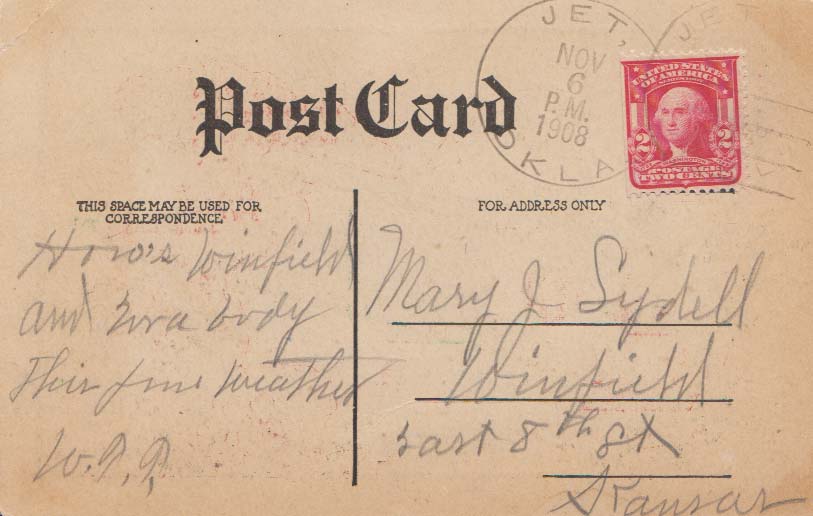 Post Card
JET,
NOV
6
P.M.
1908
OKLA
JET
UNITED STATES
OF AMERICA
2 WASHINGTON 2
POSTAGE
TWO CENTS
THIS SPACE MAY BE USED FOR
CORRESPONDENCE
How's Winfield
and body
This fine Weather
W.P.P.
FOR ADDRESS ONLY
Mary J Sydell
Winfield
East 8th St
Kansas